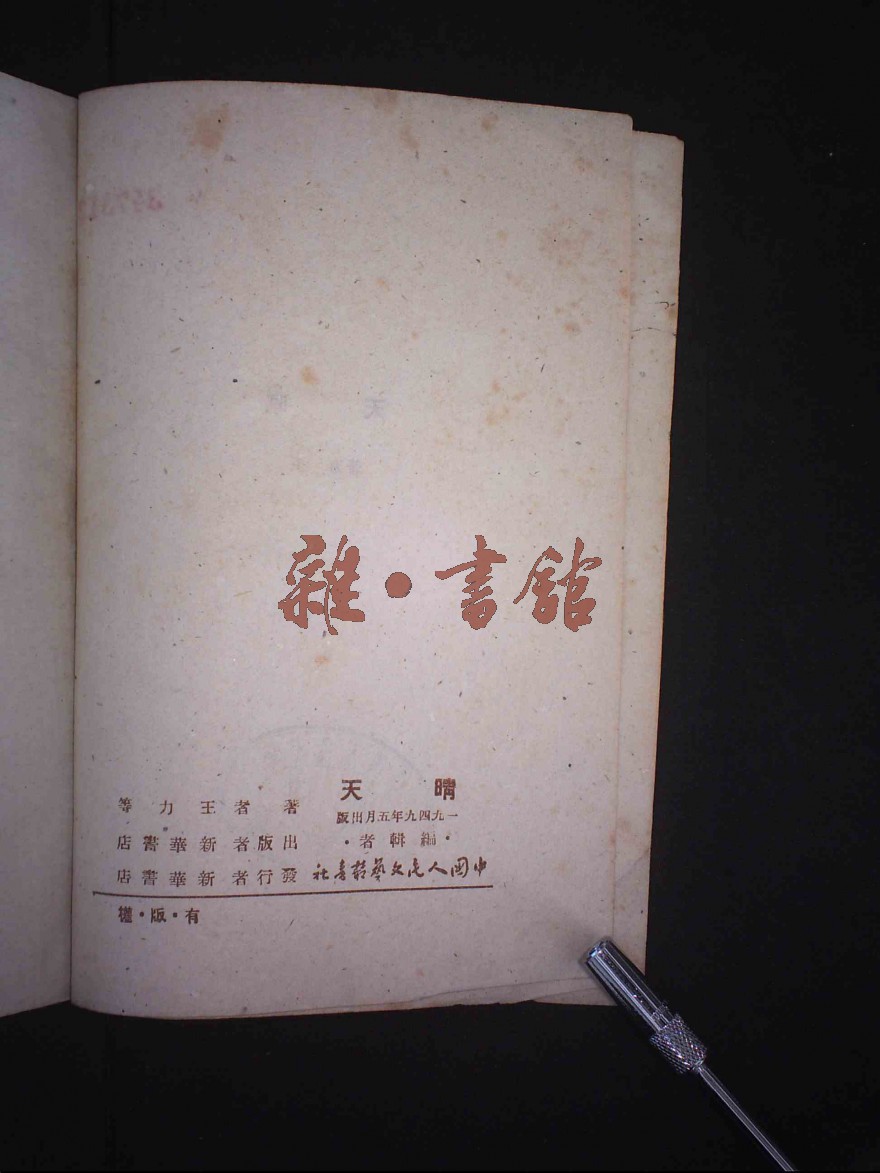 雜·書館
晴天
一九四九年五月出版
·編輯者·
中國人民文藝叢書社
著者王力等
出版者新華書店
發行者新華書店
有·版·權